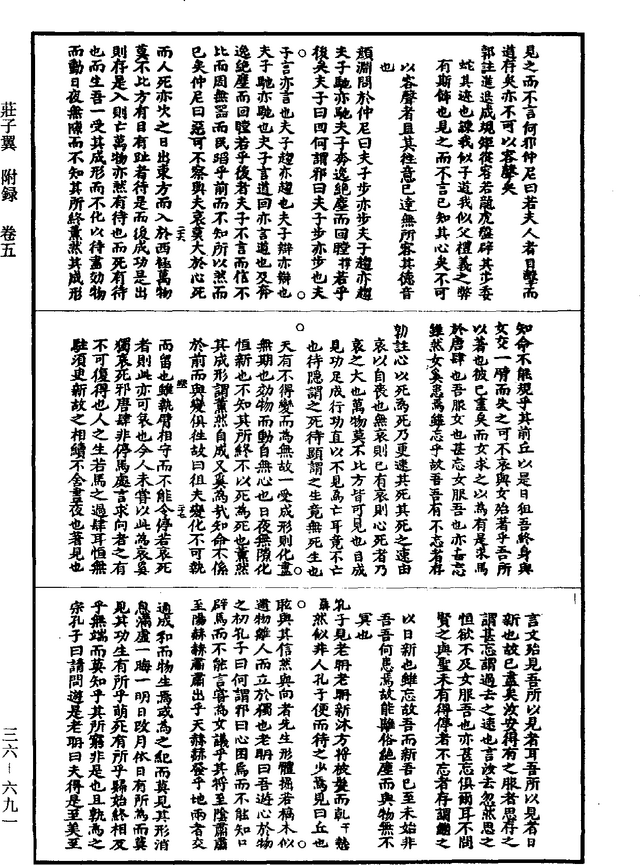 見之而不言何邪仲尼曰若夫人者目擊而
道存矣亦不可以容聲矣
郭註進退成規矩從容若龍虎盤辟其步委
蛇其迹也諫我似子道我似父禮義之弊
有斯飾也見之而不言已知其心矣不可
以容聲者目其往意已達無所容其德音
也
顏淵問於仲尼曰夫子步亦步夫子趨亦趨
夫子馳亦馳夫子奔逸絕塵而回瞠若乎
後矣夫子曰回何謂邪曰夫子步亦步也夫
子言亦言也夫子趨亦趨也夫子辯亦辯也
夫子馳亦馳也夫子言道回亦言道也及奔
逸絕塵而回瞠若乎後者夫子不言而信不
比而周無器而民蹈乎前而不知所以然而
已矣仲尼曰惡可不察與夫哀莫大於心死
而人死亦次之日出東方而入於西極萬物
莫不比方有目有趾者待是而後成功是出
則存是入則亡萬物亦然有待也而死有待
也而生吾一受其成形而不化以待盡効物
而動日夜無隙而不知其所終薰然其成形
知命不能規乎其前丘以是日徂吾終身與
女交一臂而失之可不哀與女殆著乎吾所
以著也彼已盡矣而女求之以為有是求馬
於唐肆也吾服女也甚忘女服吾也亦甚忘
雖然女奚患焉雖忘乎故吾吾有不忘者存
郭註心以死為死乃更速其死其死之速由
哀以自喪也無哀則已有哀則心死者乃
哀之大也萬物莫不比方皆可見也目成
見功足成行功直以不見為亡耳竟不亡
也待隱謂之死待顯謂之生竟無死生也
夫有不得變而為無故一受成形則化盡
無期也効物而動自無心也日夜無隙化
恒新也不知其所終不以死為死也薰然
其成形謂薰然自成又奚為哉知命不係
於前而與變俱往故曰徂夫變化不可執
而留也雖執臂相守而不能令停若哀死
者則此亦可哀也今人未嘗以此為哀奚
獨哀死邪唐肆非停馬處言求向者之有
不可復得也人之生若馬之過肆耳恒無
駐須更新故之相續不舍晝夜也著見也
言女殆見吾所以見者耳吾所以見者日
新也故已盡矣汝安得有之服者思存之
謂甚忘謂過去之速也言汝去忽然思之
恒欲不及女服吾也亦甚忘俱爾耳不問
賢之與聖未有得停者不忘者存謂繼之
以日新也雖忘故吾而新吾已至未始非
吾吾何患焉故能離俗絕塵而與物無不
冥也
孔子見老聃老聃新沐方將被髮而乾慹
然似非人孔子便而待之少焉見曰丘也
眩與其信然與向者先生形體掘若槁木似
遺物離人而立於獨也老聃曰吾遊心於物
之初孔子曰何謂邪曰心困焉而不能知口
辟焉而不能言嘗為女議乎其將至陰肅肅
至陽赫赫肅肅出乎天赫赫發乎地兩者交
通成和而物生焉或為之紀而莫見其形消
息滿虛一晦一明日改月依日有所為而莫
見其功生有所乎萌死有所乎歸始終相反
乎無端而莫知乎其所窮非是也且孰為之
宗孔子曰請問遊是老聃曰夫得是至美至
莊子翼　附録　卷五
三六－六九一